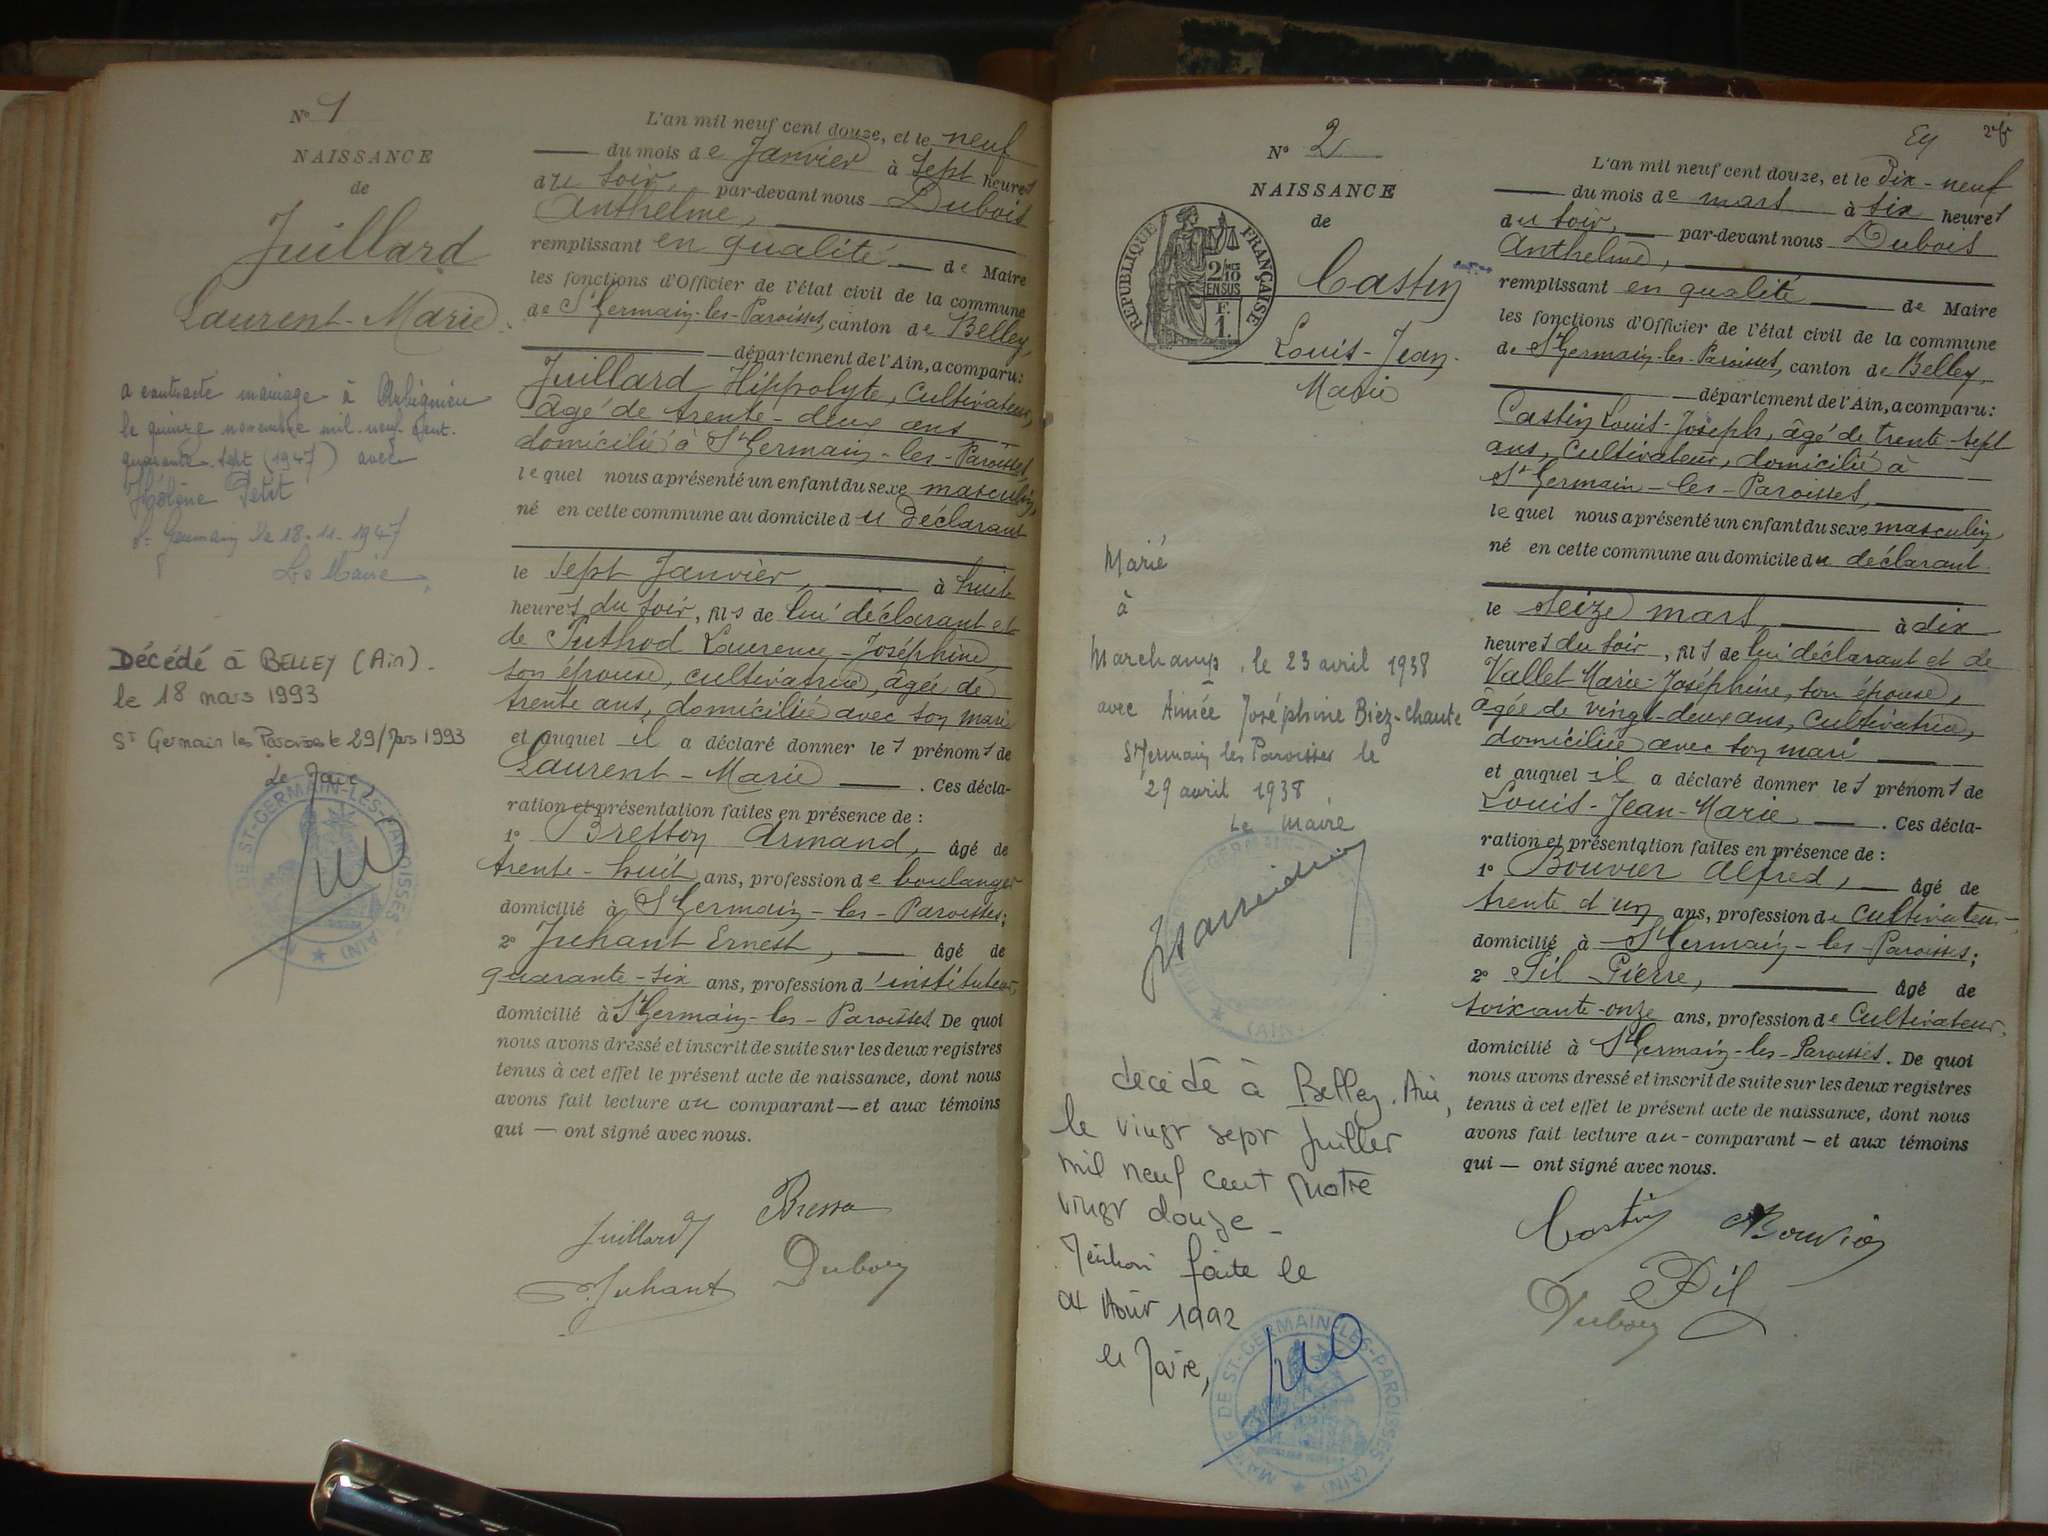 N° 1
NAISSANCE
de
Juillard
Laurent-Marie
a contracté mariage à Arbignieu
le quinze novembre mil neuf cent
quarante sept (1947) avec
Hélène Petit
St Germain le 18-11-1947
Le Maire
Décédé à BELLEY (Ain).
le 18 mars 1993
ST Germain les Paroisses le 29/Mars 1993
Le Maire,
MAIRIE DE ST-GERMAIN-LES-PAROISSES (AIN)
L'an mil neuf cent douze, et le neuf
du mois de Janvier à sept heures
du soir, par-devant nous Dubois
Anthelme,
remplissant en qualité de Maire
les fonctions d'Officier de l'état civil de la commune
de St Germain-les-Paroisses, canton de Belley,
département de l'Ain, a comparu:
Juillard Hippolyte, Cultivateur,
âgé de trente-deux ans
domicilié à St Germain-les-Paroisses,
lequel nous a présenté un enfant du sexe masculin,
né en cette commune au domicile du Déclarant
le sept Janvier, à huit
heures du soir, fils de lui déclarant et
de Tuthod Laurence-Joséphine,
son épouse, cultivatrice, âgée de
trente ans, domiciliée avec son mari
et auquel il a déclaré donner les prénoms de
Laurent-Marie. Ces décla-
ration et présentation faites en présence de :
1° Bresson Armand, âgé de
trente-huit ans, profession de boulanger
domicilié à St Germain-les-Paroisses;
2° Juhant Ernest, âgé de
quarante-six ans, profession d'instituteur,
domicilié à St Germain-les-Paroisses. De quoi
nous avons dressé et inscrit de suite sur les deux registres
tenus à cet effet le présent acte de naissance, dont nous
avons fait lecture au comparant — et aux témoins
qui — ont signé avec nous.
Juillard Bresson
Juhant Dubois
2
N° 2
NAISSANCE
de
RÉPUBLIQUE FRANÇAISE
2/10
EN SUS
F.
1.
Castin
Louis-Jean-
Marie
Marié
à
Marchamp, le 23 avril 1938
avec Aimée Joséphine Biez-Chante
St Germain les Paroisses le
29 avril 1938
Le Maire
décédé à Belley. Ain,
le vingt sept Juillet
mil neuf cent quatre
vingt douze
Mention faite le
04 Août 1992
le Maire,
MAIRIE DE ST-GERMAIN-LES-PAROISSES (AIN)
L'an mil neuf cent douze, et le Dix-neuf
du mois de mars à six heures
du soir, par-devant nous Dubois
Anthelme,
remplissant en qualité de Maire
les fonctions d'Officier de l'état civil de la commune
de St Germain-les-Paroisses, canton de Belley,
département de l'Ain, a comparu:
Castin Louis-Joseph, âgé de trente-sept
ans, Cultivateur, domicilié à
St Germain-les-Paroisses,
lequel nous a présenté un enfant du sexe masculin,
né en cette commune au domicile du déclarant
le seize mars, à dix
heures du soir, fils de lui déclarant et de
Vallet Marie-Joséphine, son épouse,
âgée de vingt-deux ans, Cultivatrice,
domiciliée avec son mari
et auquel il a déclaré donner les prénoms de
Louis-Jean-Marie. Ces décla-
ration et présentation faites en présence de :
1° Bouvier Alfred, âgé de
trente d'un ans, profession de Cultivateur
domicilié à St Germain-les-Paroisses;
2° Pil Pierre, âgé de
soixante-onze ans, profession de Cultivateur,
domicilié à St Germain-les-Paroisses. De quoi
nous avons dressé et inscrit de suite sur les deux registres
tenus à cet effet le présent acte de naissance, dont nous
avons fait lecture au comparant — et aux témoins
qui — ont signé avec nous.
Castin Bouvier
Pil
Dubois